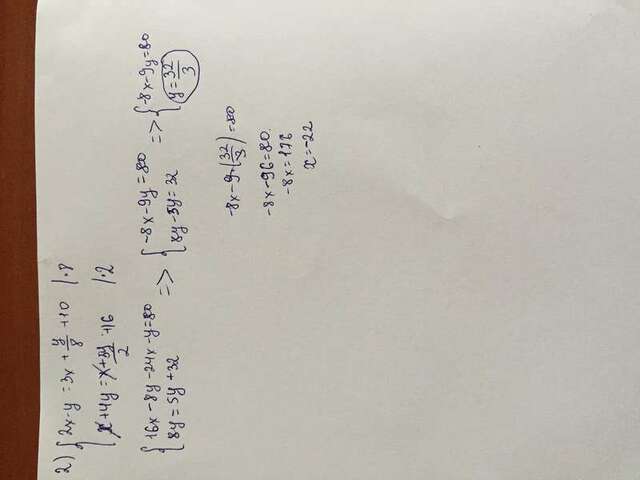 2) { 2x-y = 3x + y/8 + 10 |·8
x+4y = x + 5y/2 + 16 |·2
{ 16x - 8y - 24x - y = 80 => { -8x - 9y = 80 => { -8x - 9y = 80
8y = 5y + 32 { 8y - 5y = 32 { y = 32/3
-8x - 9·(32/3) = 80
-8x - 96 = 80
-8x = 176
x = -22